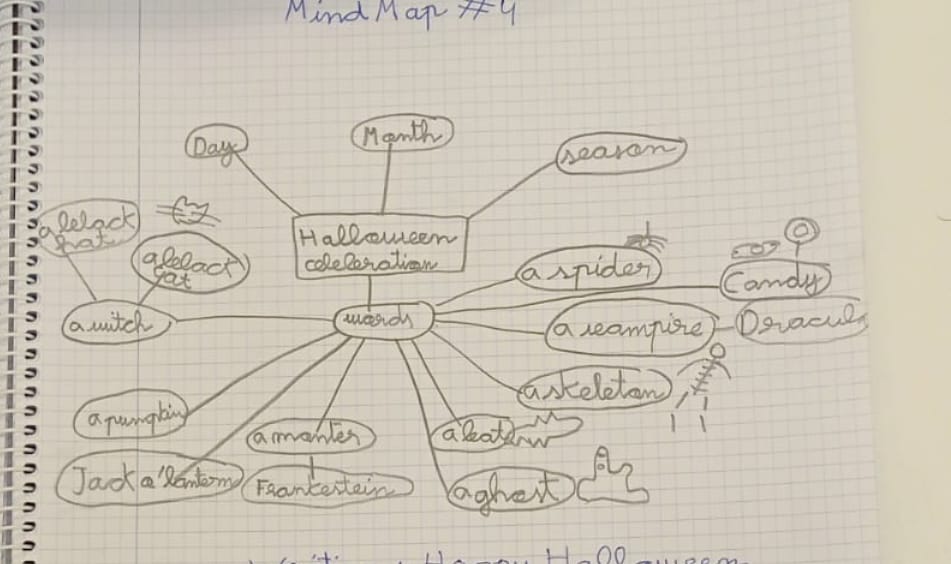 Mind Map #4
Day
Month
season
a black
hat
a black
cat
Halloween
celebration
a spider
Candy
a witch
words
a vampire
Dracula
a skeleton
a pumpkin
a monster
a bat
Jack o'lantern
Frankestein
a ghost
Happy Halloween